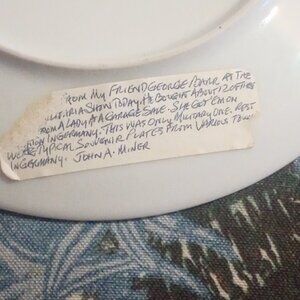 FROM MY FRIEND GEORGE BARR AT THE
SHOW TODAY. HE BOUGHT ABOUT 20 OF THESE
FROM A LADY AT A GARAGE SALE. SHE GOT 'EM ON
IN GERMANY. THIS WAS ONLY MILITARY ONE. REST
WERE TYPICAL SOUVENIR PLATES FROM VARIOUS
IN GERMANY. JOHN A. MINER